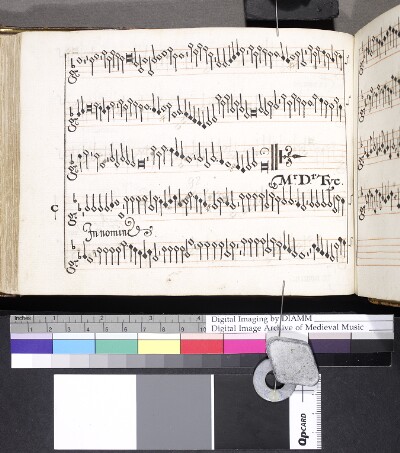 Mr Dr Tye.
C
In nomine
inches 1 2 3 4 5 6 7 8 9 10
Digital Imaging by DIAMM
Digital Image Archive of Medieval Music
QPCARD